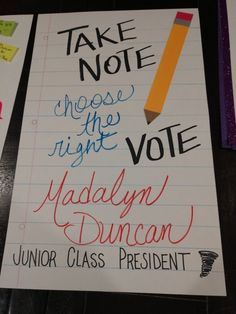 TAKE
NOTE
choose
the
right
VOTE
Madalyn
Duncan
JUNIOR CLASS PRESIDENT